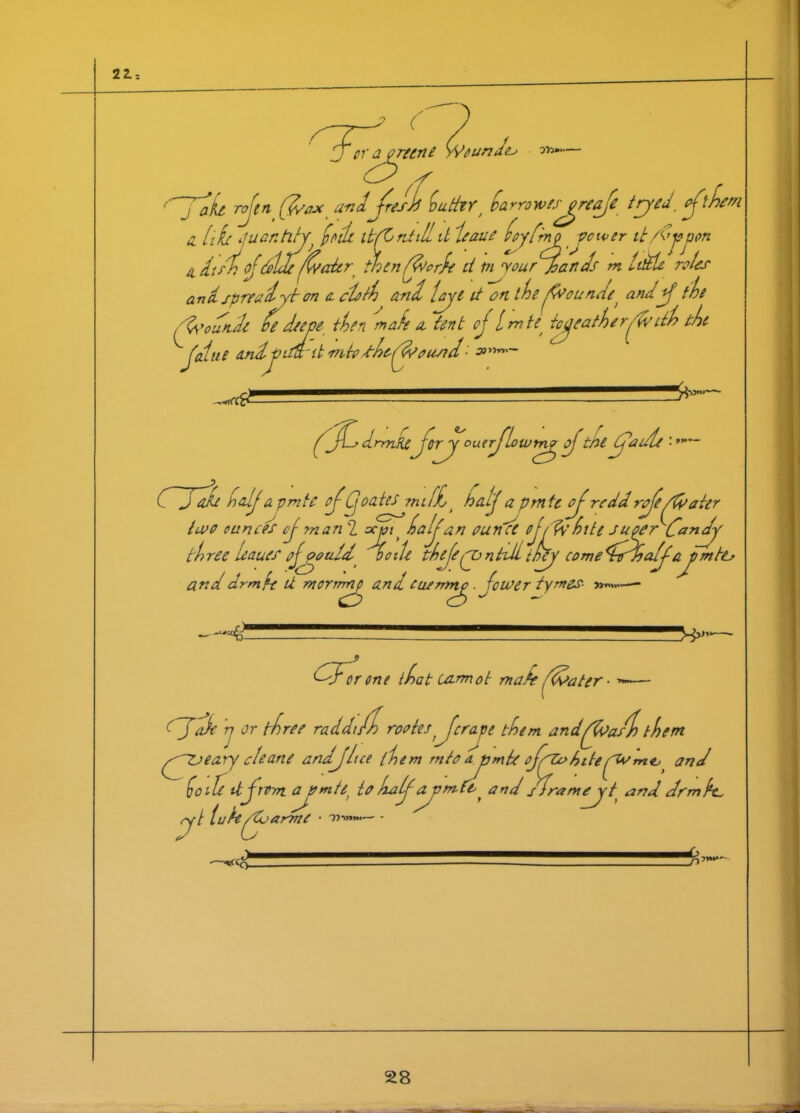 22:
For a greene Wounde
Take rosen wax and fresh butter, barrowes grease tryed, of them
a like quantity, boile it untill it leaue boyling power it uppon
a dish of colde water, then worke it in your hands in little roles
and spread yt on a cloth and laye it on the wounde, and if the
wounde be deepe, then make a tent of linte, togeather with the
salue and putt it into the wound:
A drinke for ye ouerflowing of the Gaule:
Take half a pinte of Goates milk, half a pinte of redd rose water
two ounces of man l xpi half an ounce of white suger Candy
three leaues of gould, boile these untill they come to half a pinte
and drinke it morning and euening. fower tymes
For one that cannot make water.
Take ij or three raddish rootes, scrape them and wash them
veary cleane and slice them into a pinte of white wine, and
boile it from a pinte, to half a pinte, and straine yt, and drinke
yt luke warme.
28